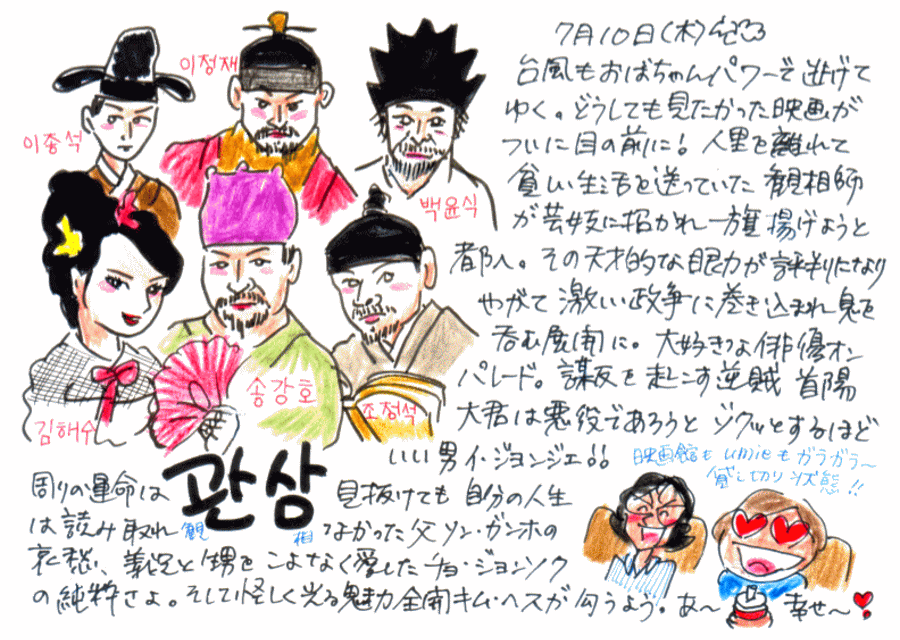 7月10日(木)
台風もおばちゃんパワーで逃げて
ゆく。どうしても見たかった映画が
ついに目の前に! 人里を離れて
貧しい生活を送っていた 観相師
が芸妓に招かれ一旗揚げようと
都へ。その天才的な眼力が評判になり
やがて激しい政争に巻き込まれ息を
呑む展開に。大好きな俳優オン
パレード。謀反を起こす逆賊 首陽
大君は悪役であろうとゾクッとするほど
いい男イ・ジョンジェ!!
映画館もumieもガラガラ〜
貸し切り状態!!
이정재
이종석
백윤식
김혜수
송강호
조정석
관상
観 相
周りの運命は 見抜けても 自分の人生
は読み取れ なかった父ソン・ガンホの
哀愁、義兄と甥をこよなく愛したチョ・ジョンソク
の純粋さよ。そして怪しく光る魅力全開キム・ヘスが匂うよう。あ〜 幸せ〜